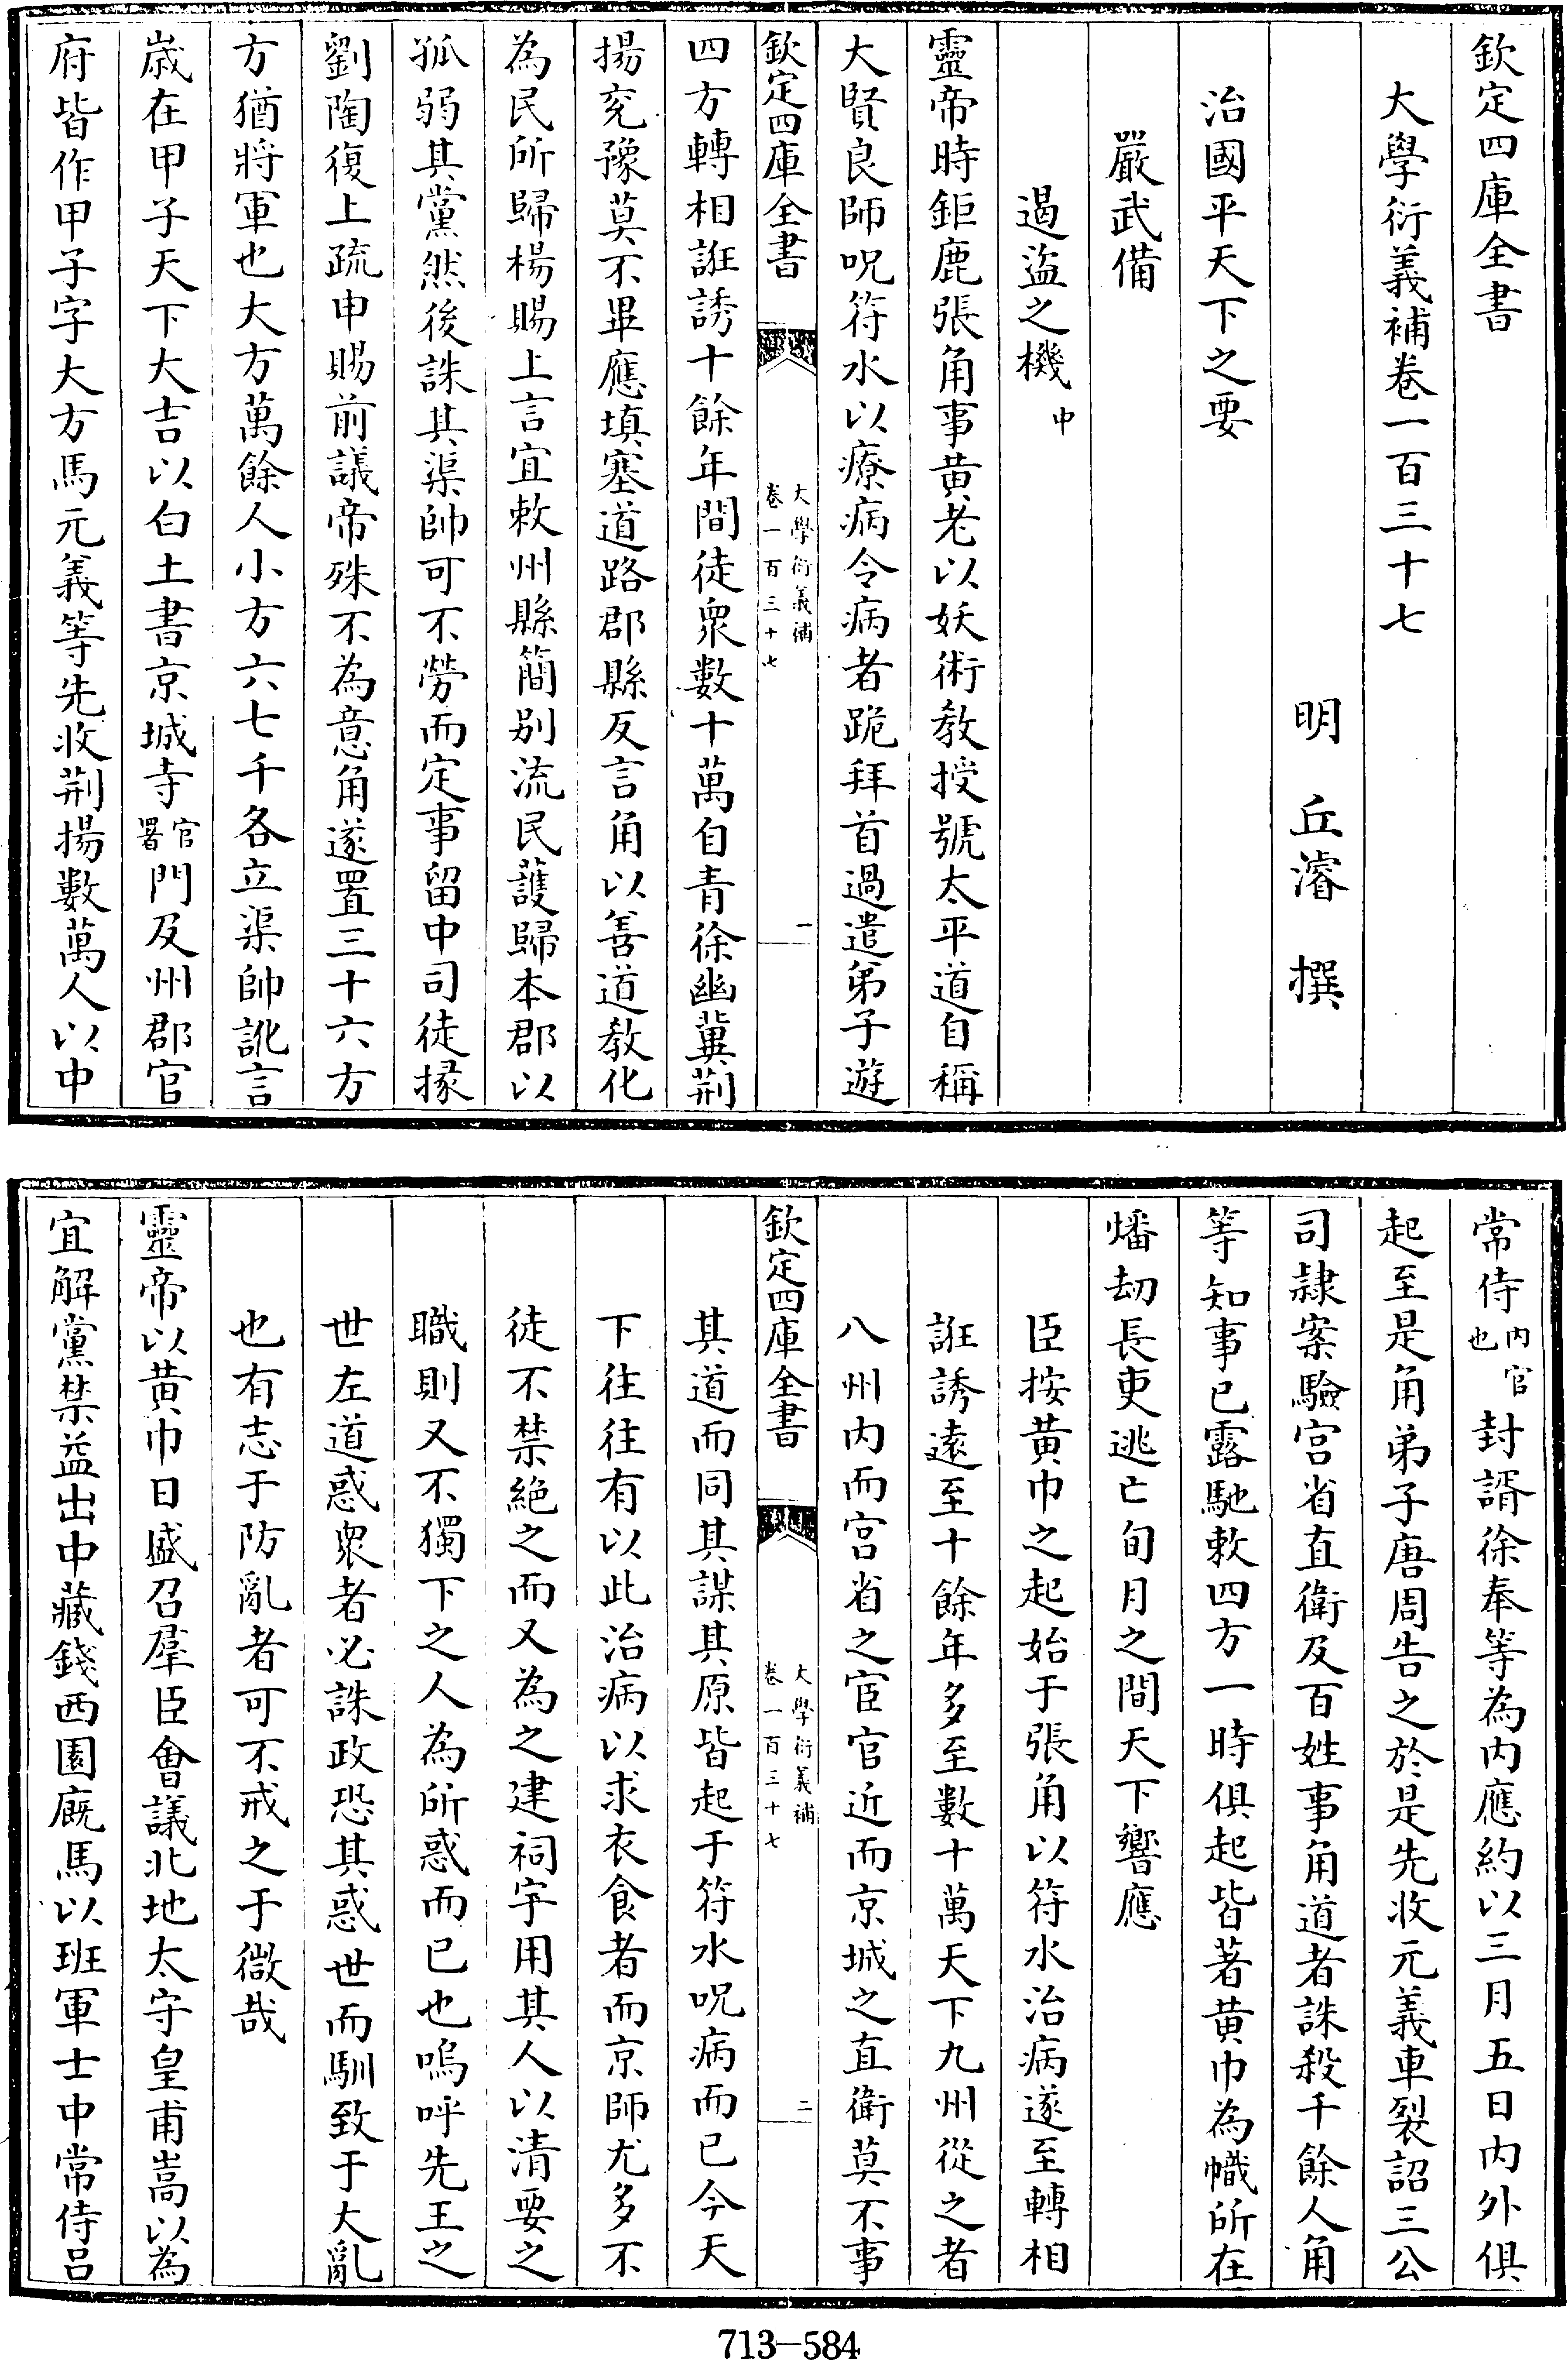 欽定四庫全書
大學衍義補卷一百三十七
明 丘濬 撰
治國平天下之要
嚴武備
遏盜之機中
靈帝時鉅鹿張角事黄老以妖術教授號太平道自稱
大賢良師呪符水以療病令病者跪拜首過遣弟子遊
欽定四庫全書
大學衍義補
卷一百三十七
一
四方轉相誑誘十餘年間徒衆數十萬自青徐幽冀荆
揚兖豫莫不畢應填塞道路郡縣反言角以善道教化
為民所歸楊賜上言宜敕州縣簡别流民䕶歸本郡以
孤弱其黨然後誅其渠帥可不勞而定事留中司徒掾
劉陶復上疏申賜前議帝殊不為意角遂置三十六方
方猶將軍也大方萬餘人小方六七千各立渠帥訛言
嵗在甲子天下大吉以白土書京城寺官署門及州郡官
府皆作甲子字大方馬元義等先收荆揚數萬人以中
常侍内官也封諝徐奉等為内應約以三月五日内外俱
起至是角弟子唐周告之於是先收元義車裂詔三公
司隷案驗宫省直衛及百姓事角道者誅殺千餘人角
等知事已露馳敕四方一時俱起皆著黄巾為幟所在
燔刼長吏逃亡旬月之間天下響應
臣按黄巾之起始于張角以符水治病遂至轉相
誑誘逺至十餘年多至數十萬天下九州從之者
八州内而宫省之宦官近而京城之直衛莫不事
欽定四庫全書
大學衍義補
卷一百三十七
二
其道而同其謀其原皆起于符水呪病而已今天
下往往有以此治病以求衣食者而京師尤多不
徒不禁絶之而又為之建祠宇用其人以清要之
職則又不獨下之人為所惑而已也嗚呼先王之
世左道惑衆者必誅政恐其惑世而馴致于大亂
也有志于防亂者可不戒之于微哉
靈帝以黄巾日盛召羣臣會議北地太守皇甫嵩以為
宜解黨禁益出中藏錢西園廐馬以班軍士中常侍吕
713-584